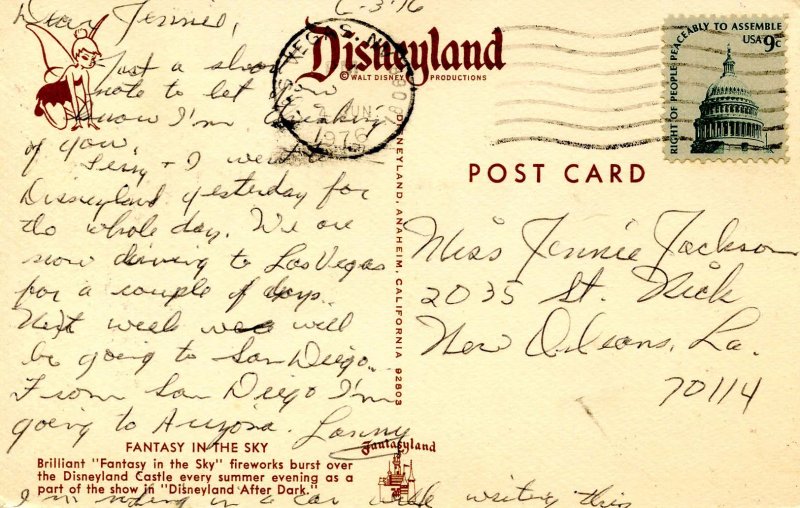 Dear Jennie,
6-3-76
Just a short
note to let you
know I'm thinking
of you.
Terry + I went to
Disneyland yesterday for
the whole day. We are
now driving to Las Vegas
for a couple of days.
Next week we will
be going to San Diego.
From San Diego I'm
going to Arizona. Lanny
FANTASY IN THE SKY
Brilliant "Fantasy in the Sky" fireworks burst over
the Disneyland Castle every summer evening as a
part of the show in "Disneyland After Dark."
I'm riding in a car while writing this
Disneyland
© WALT DISNEY PRODUCTIONS
VEGAS, NV
JUN
1976
DISNEYLAND, ANAHEIM, CALIFORNIA 92803
Fantasyland
RIGHT OF PEOPLE PEACEABLY TO ASSEMBLE
USA 9c
POST CARD
Miss Jennie Jackson
2035 St. Nick
New Orleans, La.
70114